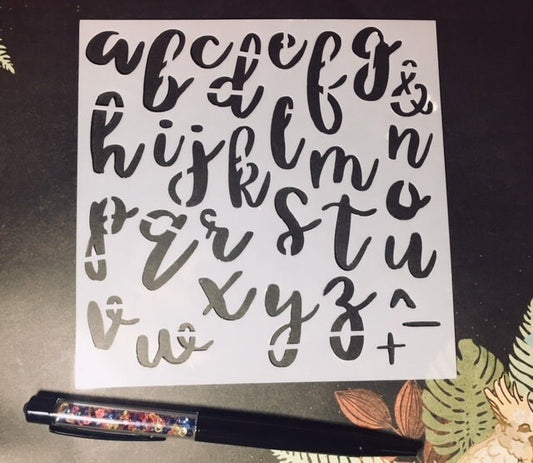 a b c d e f g &
h i j k l m n
p q r s t o u
v w x y z ^ + -